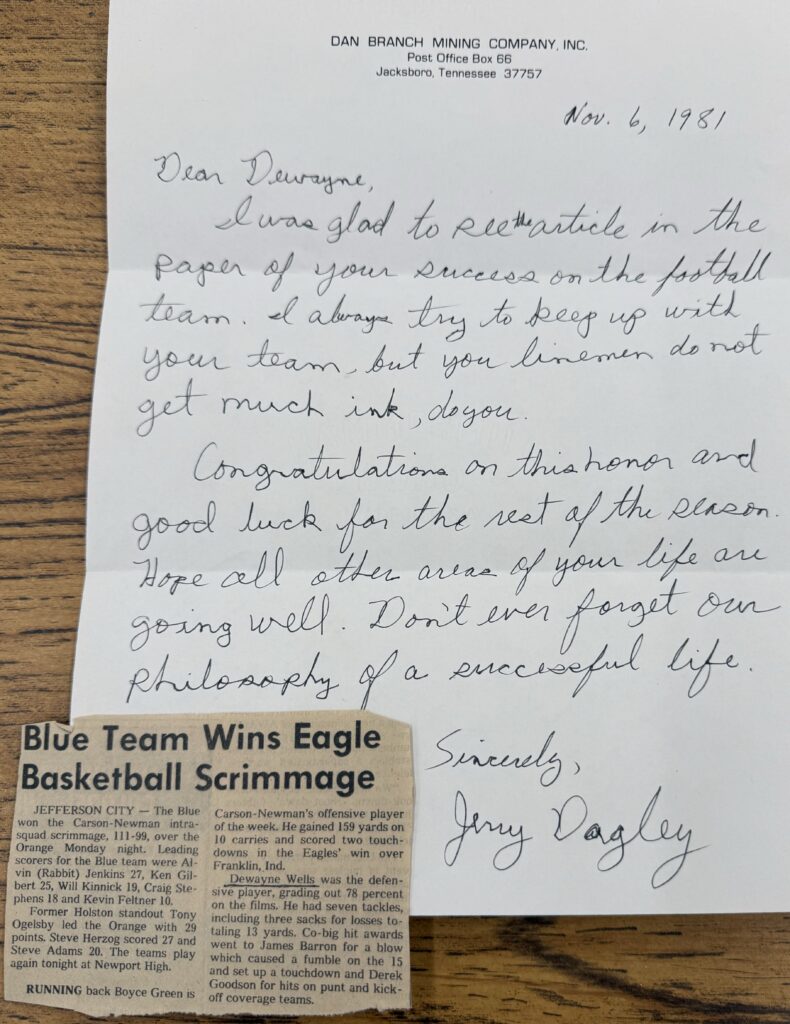 DAN BRANCH MINING COMPANY, INC.
Post Office Box 66
Jacksboro, Tennessee 37757
Nov. 6, 1981
Dear Dewayne,
I was glad to see the article in the
paper of your success on the football
team. I always try to keep up with
your team, but you linemen do not
get much ink, do you.
Congratulations on this honor and
good luck for the rest of the season.
Hope all other areas of your life are
going well. Don't ever forget our
philosophy of a successful life.
Sincerely,
Jerry Dagley
Blue Team Wins Eagle
Basketball Scrimmage
JEFFERSON CITY — The Blue
won the Carson-Newman intra-
squad scrimmage, 111-99, over the
Orange Monday night. Leading
scorers for the Blue team were Al-
vin (Rabbit) Jenkins 27, Ken Gil-
bert 25, Will Kinnick 19, Craig Ste-
phens 18 and Kevin Feltner 10.
Former Holston standout Tony
Ogelsby led the Orange with 29
points. Steve Herzog scored 27 and
Steve Adams 20. The teams play
again tonight at Newport High.
RUNNING back Boyce Green is
Carson-Newman's offensive player
of the week. He gained 159 yards on
10 carries and scored two touch-
downs in the Eagles' win over
Franklin, Ind.
Dewayne Wells was the defen-
sive player, grading out 78 percent
on the films. He had seven tackles,
including three sacks for losses to-
taling 13 yards. Co-big hit awards
went to James Barron for a blow
which caused a fumble on the 15
and set up a touchdown and Derek
Goodson for hits on punt and kick-
off coverage teams.